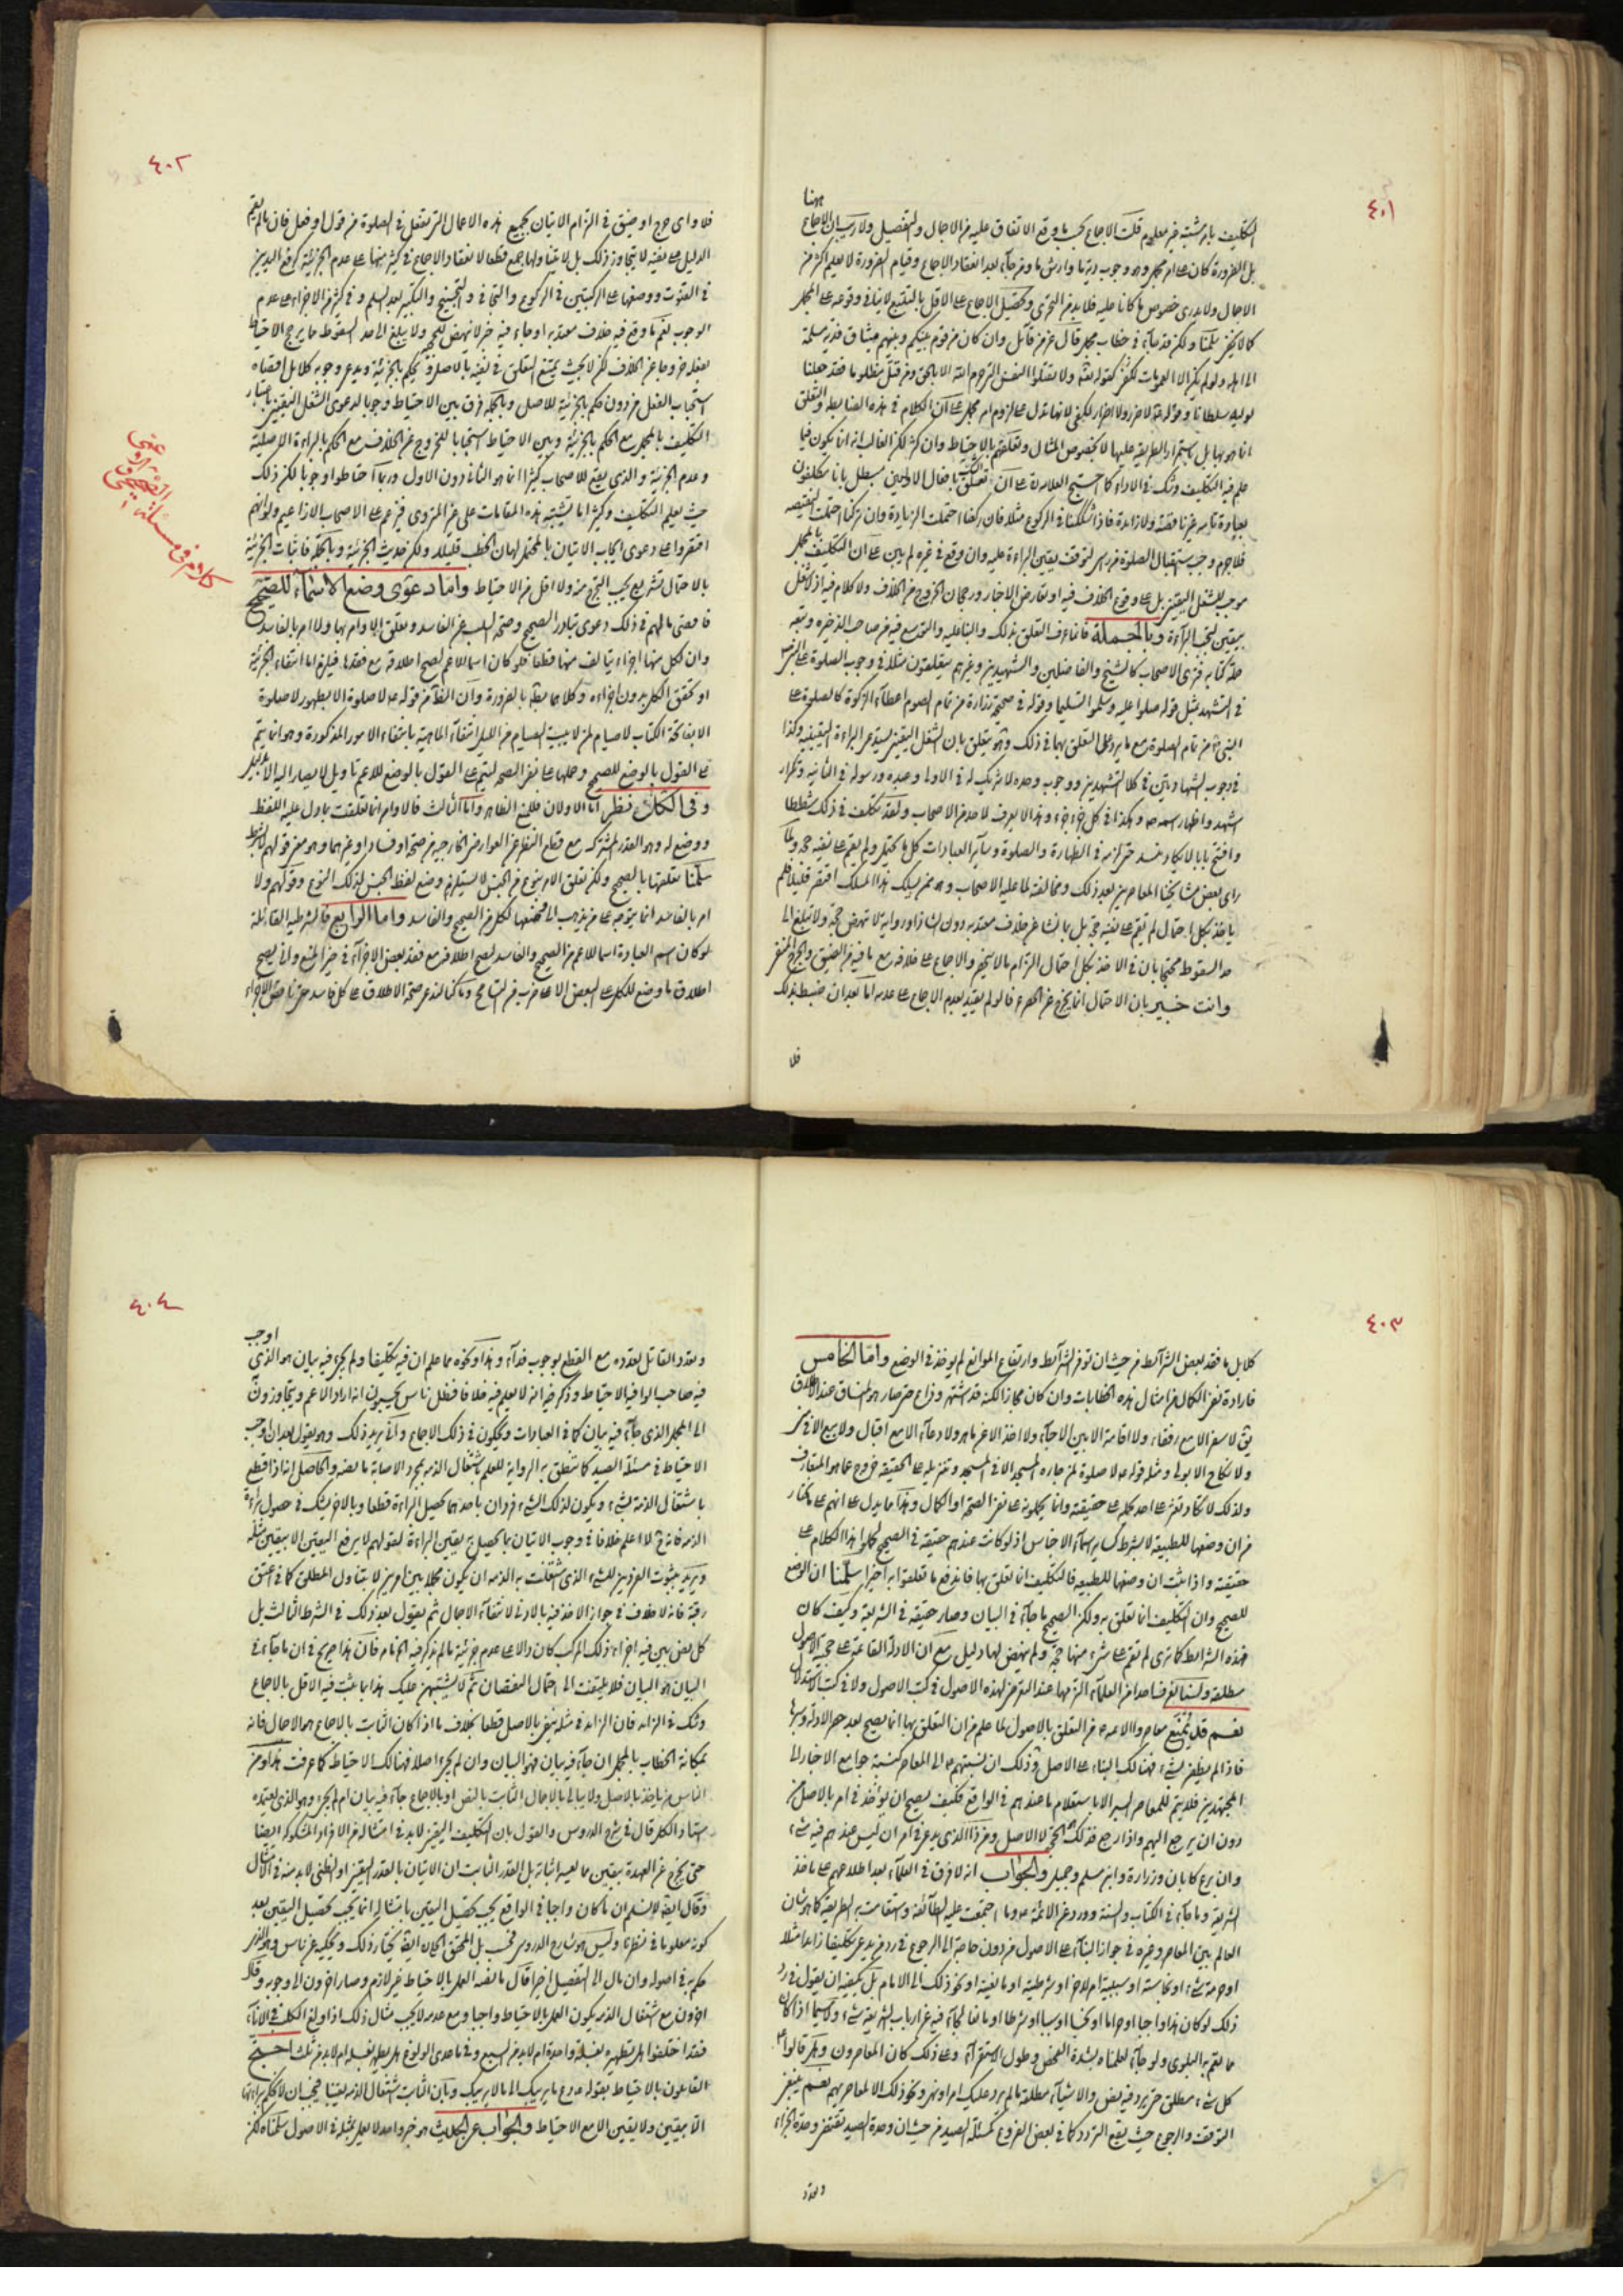 ٤٠١
ههنا
التكليف بامر مشتبه غير معلوم قلت الاجماع يجب ما وقع الاتفاق عليه من الاجمال والتفصيل ولا ريب ان الاجماع
بل الضرورة كان على امر مجمل وهو وجوب دية ما وارش ما ومن جاء بعد انعقاد الاجماع وقيام الضرورة لا يعلم اكثر من
الاجمال ولا يدرى خصوص ما كانا عليه فلا بد من التحرى وتحصيل الاجماع على الاقل بالتتبع لا ينافى وقوعه على المجمل
كما لا يخفى سلمنا ولكن قد جاء فى خطاب مجمل قال عز من قائل وان كان من قوم بينكم وبينهم ميثاق فدية مسلمة
الى اهله ولو لم يكن الا العمومات لكفى كقوله تعالى ولا تقتلوا النفس التى حرم الله الا بالحق ومن قتل مظلوما فقد جعلنا
لوليه سلطانا وقوله لا ضرر ولا اضرار لكفى لانها تدل على لزوم امر مجمل على ان الكلام فى هذه الضابطة والتعلق
انما هو بها بل باستمرار الطريقة عليها لا بخصوص المثال وتعلقهم بالاحتياط وان كثر لكن الغالب انه انما يكون فيما
علم فيه التكليف وشك فى الاداء كما احتج العلامة على ان تعلق الشك بافعال الاولتين مبطل بانا مكلفون
بعبادة تامه غير ناقصة ولا زائدة فاذا شككنا فى الركوع مثلا فان ركعنا احتملت الزيادة وان تركنا احتملت النقيصه
فلا جرم وجب استقبال الصلوة من راس لتوقف يقين البراءة عليه وان وقع فى غيره لم يبن على ان التكليف بالمجمل
موجب للشغل اليقينى بل على وقوع الخلاف فيه او تعارض الاخبار ورجحان الخروج من الخلاف ولا كلام فيه اذ لا شغل
بيقين لتجب البراءة وبالجملة فانما عرف التعلق بذلك والبناء عليه والتوسع فيه من صاحب الذخيرة وتبعه
جلة كتابه فترى الاصحاب كالشيخ والفاضلين والشهيدين وغيرهم يتعلقون مثلا فى وجوب الصلوة على النبى ص
فى التشهد بمثل قوله صلوا عليه وسلموا تسليما وقوله فى صحيحة زرارة من تمام الصوم اعطاء الزكوة كالصلوة على
النبى ص من تمام الصلوة مع ما يرد على التعلق بهما فى ذلك وهو يتعلق بان الشغل اليقينى يستدعى البراءة اليقينية وكذا
فى وجوب الشهادتين فى كلا التشهدين ووجوب وحده لا شريك له فى الاولى وعبده ورسوله فى الثانية وتكرار
اشهد واظهار اسمه ص وهكذا فى كل جزء جزء وهذا لا يعرف لاحد من الاصحاب ولقد تكلف فى ذلك شططا
وافتتح بابا لا يكاد ينسد حتى لزمه فى الطهارة والصلوة وسائر العبادات كل ما يحتمل ولم يقم على نفيه حجة ولما
راى بعض مشايخنا المعاصرين بعد ذلك ومخالفته لما عليه الاصحاب وهو ممن يسلك هذا المسلك اقتصر قليلا فلم
ياخذ بكل احتمال لم تقم على نفيه حجة بل بما نشا عن خلاف معتد به دون الشاذ او رواية لا تنهض حجة ولا تبلغ الى
حد السقوط محتجا بان فى الاخذ بكل احتمال التزام بالا سيخف والاجماع على خلافه مع ما فيه من الضيق والحرج المنفى
وانت خبير بان الاحتمال انما يخرج عن الحصر فيما لو لم يقيد بعدم الاجماع على عدمه اما بعد ان ضبط بذلك
فلا
٤٠٢
فلا واى حرج او ضيق فى التزام الاتيان بجميع هذه الاعمال التى تفعل فى الصلوة من قول او فعل فان ما لم يقم
الدليل على نفيه لا يتجاوز ذلك بل لا يتناولها جمع قطعا لانعقاد الاجماع فى كثير منها على عدم الجزئية كرفع اليدين
فى القنوت ووضعها على الركبتين فى الركوع والتجافى والتجنيح والتكبير بعد التسليم وفى كثير من الاجزاء على عدم
الوجوب نعم ما وقع فيه خلاف معتد به او جاء فيه خبر لا ينهض للحجة ولا يبلغ الى حد السقوط مما يرجح الاحتياط
بفعله خروجا عن الخلاف لكن لا بحيث يمتنع التعلق فى نفيه بالاصل وتحكم بالجزئية ويدعى وجوبه كلا بل اقصاه
استحباب الفعل من دون حكم بالجزئية للاصل وبالجملة فرق بين الاحتياط وجوبا لدعوى الشغل اليقينى باعتبار
التكليف بالمجمل مع الحكم بالجزئية وبين الاحتياط استحبابا للخروج عن الخلاف مع الحكم بالبراءة الاصلية
وعدم الجزئية والذى يقع للاصحاب كثيرا انما هو الثانى دون الاول وربما احتاطوا وجوبا لكن ذلك
حيث يعلم التكليف وكثيرا ما تشتبه هذه المقامات على غير المتروى فيزعم على الاصحاب الا زاعيم ولو انهم
اقتصروا على دعوى ايجاب الاتيان بالمحتمل لهان الخطب قليلا ولكن حديث الجزئية وبالجملة فاثبات الجزئية
بالاحتمال تشريع يجب التحرج منه ولا اقل من الاحتياط واما دعوى وضع الاسماء للصحيح
فاقصى ما لهم فى ذلك دعوى تبادر الصحيح وصحة السلب عن الفاسد وتعلق الاوامر بها ولا امر بالفاسد
وان لكل منها اجزاء يتالف منها قطعا فلو كان اسما للاعم لصح اطلاقه مع فقدها فيلزم اما انتفاء الجزئية
او تحقق الكل بدون اجزاءه وكلاهما بديهى بالضرورة وان الظاهر من قوله ع لا صلوة الا بطهور لا صلوة
الا بفاتحة الكتاب لا صيام لمن لا يبيت الصيام من الليل انتفاء الماهية بانتفاء الامور المذكورة وهو انما يتم
على القول بالوضع للصحيح وحملها على نفى الصحة ليتم على القول بالوضع للاعم تاويل لا يصار اليه الا بدليل
وفى الكل نظر اما الاولان فلمنع الظاهر واما الثالث فالاوامر انما تعلقت بما دل عليه اللفظ
ووضع له وهو القدر المشترك مع قطع النظر عن العوارض الخارجية من صحة او فساد او غيرهما وهو معنى قولهم لا بشرط
سلمنا تعلقها بالصحيح ولكن تعلق الامر بنوع من الجنس لا يستلزم وضع لفظ الجنس لذلك النوع وقولهم ولا
امر بالفاسد انما يتوجه على من يذهب الى وضعها لكل من الصحيح والفاسد واما الرابع فالشرطية القائلة
لو كان اسم العبادة اسما للاعم من الصحيح والفاسد لصح اطلاقه مع فقد بعض الاجزاء فى حيز المنع وانى يصح
اطلاق ما وضع للكل على البعض الا على ضرب من التسامح وما كنا لندعى صحة الاطلاق على كل فاسد حتى ناقص الاجزاء
كلام فى مسئلة الصحيحى والاعمى
٤٠٣
كلا بل ما فقد بعض الشرائط من حيث ان توفر الشرائط وارتفاع الموانع لم يوخذ فى الوضع واما الخامس
فارادة نفى الكمال من امثال هذه الخطابات وان كان مجازا لكنه قد اشتهر وذاع حتى صار هو المنساق عند الاطلاق
يق لا سفر الا مع رفقاء ولا اقامة الا بين الاحباء ولا اخذ الا عن ماهر ولا دعاء الا مع اقبال ولا بيع الا فى
ولا نكاح الا بولى ومثله قوله ع لا صلوة لمن جاره المسجد الا فى المسجد وتنزيله على الحقيقة خروج عما هو المتعارف
ولذلك لا تكاد تعثر على احد يحمله على حقيقته وانما يحملونه على نفى الصحة او الكمال وهذا مما يدل على انهم على ما نختار
من ان وضعها للطبيعة لا بشرط كسائر اسماء الاجناس اذ لو كانت عندهم حقيقة فى الصحيح لحملوا هذا الكلام على
حقيقته واذا ثبت ان وضعها للطبيعة فالتكليف انما تعلق بها فاندفع ما تعلقوا به اخيرا سلمنا ان الوضع
للصحيح وان التكليف انما تعلق به ولكن الصحيح ما جاء فى البيان وصار حقيقة فى الشريعة وكيف كان
فهذه الشرائط كما ترى لم تقم على شىء منها حجة ولم ينهض لها دليل مع ان الادلة القائمة على حجية الاصول
مطلقة ولسنا نعرف احدا من العلماء التزمها عند التعرض لهذه الاصول فى كتب الاصول ولا فى كتب الاستدلال
نعم قد يمتنع معاصروا الائمة ع من التعلق بالاصول لما علم من ان التعلق بها انما يصح بعد حصر الادلة وسبرها
فاذا لم يظفر بشىء فهنالك البناء على الاصل وذلك ان نسبتهم ع الى المعاصر كنسبة جوامع الاخبار الى
المجتهدين فلا يتم للمعاصر السبر الا باستعلام ما عندهم فى الواقع فكيف يصح ان يؤخذ فى امر بالاصل من
دون ان يرجع اليهم واذا رجع فذلك هو الحجة لا الاصل ومن ذا الذى يدعى فى امر ان ليس عندهم فيه شىء
وان برع كابان وزرارة وابن مسلم وجميل والجواب انه لا فرق فى العلماء بعد اطلاعهم على ماخذ
الشريعة وما جاء فى الكتاب والسنة وورد عن الائمة ع وما اجتمعت عليه الطائفة واستقامت به الطريقة كما هو شان
العالم بين المعاصر وغيره فى جواز البناء على الاصول من دون حاجة الى الرجوع فى رد من يدعى تكليفا زائدا مثلا
او حرمة شىء او نجاسته او سببية امر لاخر او شرطيته او مانعيته او نحو ذلك الى الامام بل يكفيه ان يقول فى رد
ذلك لو كان هذا واجبا او حراما او نجسا او سببا او شرطا او مانعا لجاء فيه عن ارباب الشريعة شىء ولا سيما اذا كان
مما تعم به البلوى ولو جاء لعلمناه بشدة الفحص وطول الاستقراء وعلى ذلك كان المعاصرون ولم قالوا ع
كل شىء مطلق حتى يرد فيه نص والاشياء مطلقة ما لم يرد عليك امر او نهى ونحو ذلك الا لمعاصريهم نعم ينبغى
التوقف والرجوع حيث يقع التردد كما فى بعض الفروع كمسئلة الصيد من حيث ان وحدة الصيد تقتضى وحدة الجزاء
وتعدد
٤٠٤
اوجب
وتعدد القاتل تعدده مع القطع بوجوب فداء وهذا ونحوه مما علم ان فيه تكليفا ولم يجىء فيه بيان هو الذى
فيه صاحب الوافية الاحتياط وذكر فيه انه لا يعلم فيه خلافا فظل ناس يحسبون انه اراد الاعم ويتجاوزون
الى المجمل الذى جاء فيه بيان كما فى العبادات ويحكون فى ذلك الاجماع وانى يريد ذلك وهو يقول بعد ان اوجب
الاحتياط فى مسئلة الصيد كما تنطق به الرواية للعلم باشتغال الذمة بمجرد الاصابة ما نصه والحاصل انه اذا قطع
باشتغال الذمة بشىء ويكون لذلك الشىء فردان باحدهما يحصل البراءة قطعا وبالاخر يشك فى حصول براءة
الذمة فانه ح لا اعلم خلافا فى وجوب الاتيان بما يحصل به يقين البراءة لقولهم لا يرفع اليقين الا بيقين مثله
ويريد بثبوت الفردين للشىء الذى اشتغلت به الذمة ان يكون مجملا بين امرين لا يتناول المطلق كما فى عتق
رقبة فانه لا خلاف فى جواز الاخذ فيه بالادنى لانتفاء الاجمال ثم يقول بعد ذلك فى الشرط الثالث بل
كل نص بين فيه اجزاء ذلك المركب كان دالا على عدم جزئية ما لم يذكر فيه انتهى كلامه فان هذا صريح فى ان ما جاء فى
البيان هو البيان فلا يلتفت الى احتمال النقصان ثم لا يشتبهن عليك هذا بما ثبت فيه الاقل بالاجماع
وشك فى الزائد فان الزائد فى مثله ينفى بالاصل قطعا بخلاف ما اذا كان الثابت بالاجماع هو الاجمال فانه
بمكانة الخطاب بالمجمل ان جاء فيه بيان فهو البيان وان لم يجىء اصلا فهنالك الاحتياط كما عرفت هذا ومن
الناس من ياخذ بالاصل ولا يبالى بالاجمال الثابت بالنص او بالاجماع جاء فيه بيان ام لم يجىء وهو الذى يعتمده
استاد الكل قال فى شرح الدروس والقول بان التكليف اليقينى لا بد فى امتثاله من الافراد المشكوكه ايضا
حتى يخرج عن العهدة بيقين مما يعسر اثباته بل القدر الثابت ان الاتيان بالقدر اليقينى او الظنى لا بد منه فى الامتثال
وقال ايضا لا نسلم ان ما كان واجبا فى الواقع يجب تحصيل اليقين بامتثاله انما يجب تحصيل اليقين بعد
كونه معلوما فى نظرنا وليس هو شارح الدروس فحسب بل المحقق الخوانسارى يختار ذلك ويحكيه عن ناس وهو الذى
حكم به فى اصوله وان مال الى التفصيل اخيرا قال ما نصه العمل بالاحتياط غير لازم وصار اخرون الى وجوبه وقال
اخرون مع اشتغال الذمة يكون العمل بالاحتياط واجبا ومع عدمه لا يجب مثال ذلك اذا ولغ الكلب فى الاناء
فقد اختلفوا هل يطهر بغسلة واحدة ام لا بد من السبع وفى ما عدى الولوغ هل يطهر بغسلة ام لا بد من ثلث احتج
القائلون بالاحتياط بقوله ع دع ما يريبك الى ما لا يريبك وبان الثابت اشتغال الذمة يقينا فيجب ان لا نحكم ببراءتها
الا بيقين ولا يقين الا مع الاحتياط والجواب عن الحديث هو خبر واحد لا يعمل بمثله فى الاصول سلمناه لكن